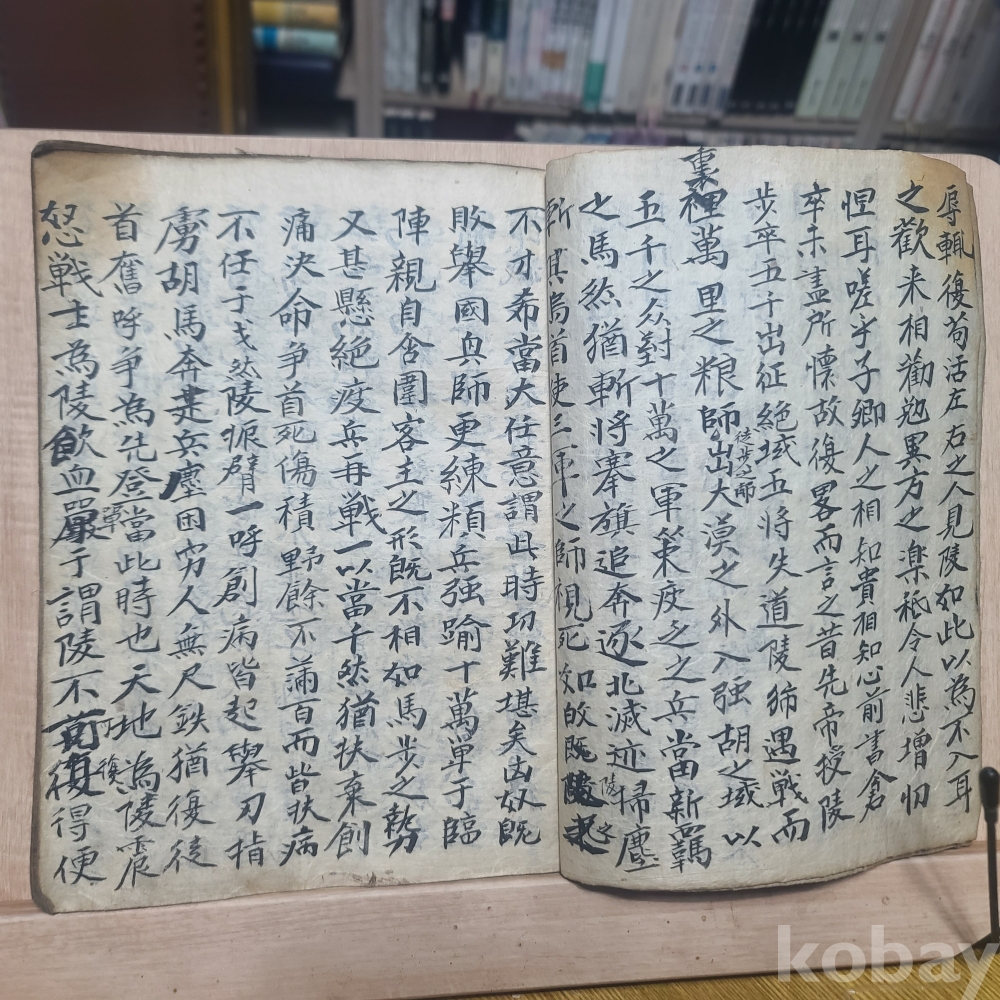 辱輒復苟活左右之人見陵如此以為不入耳
之歡来相勸勉異方之楽秖令人悲增忉
怛耳嗟乎子卿人之相知貴相知心前書倉
卒未盡所懐故復畧而言之昔先帝授陵
步卒五千出征絶域五将失道陵獨遇戰而
裹
裡萬里之粮師出大漠之外入强胡之域以
徒步之師
五千之众對十萬之軍策疲乏之兵當新羈
之馬然猶斬将搴旗追奔逐北滅迹掃塵
斬其梟首使三軍之師視死如既陵
陵也
不才希當大任意謂此時功難堪矣凶奴既
敗舉國興師更練精兵强踰十萬單于臨
陣親自合圍客主之形既不相如馬步之勢
又甚懸絶疲兵再戰一以當千然猶扶棄創
痛決命争首死傷積野餘不滿百而皆扶病
不任于戈然陵振臂一呼創病皆起舉刃指
虜胡馬奔走兵盡困穷人無尺鉄猶復徒
首奮呼争為先登當此時也天地為陵震
怒戰士為陵飲血單于謂陵不可復得便
復